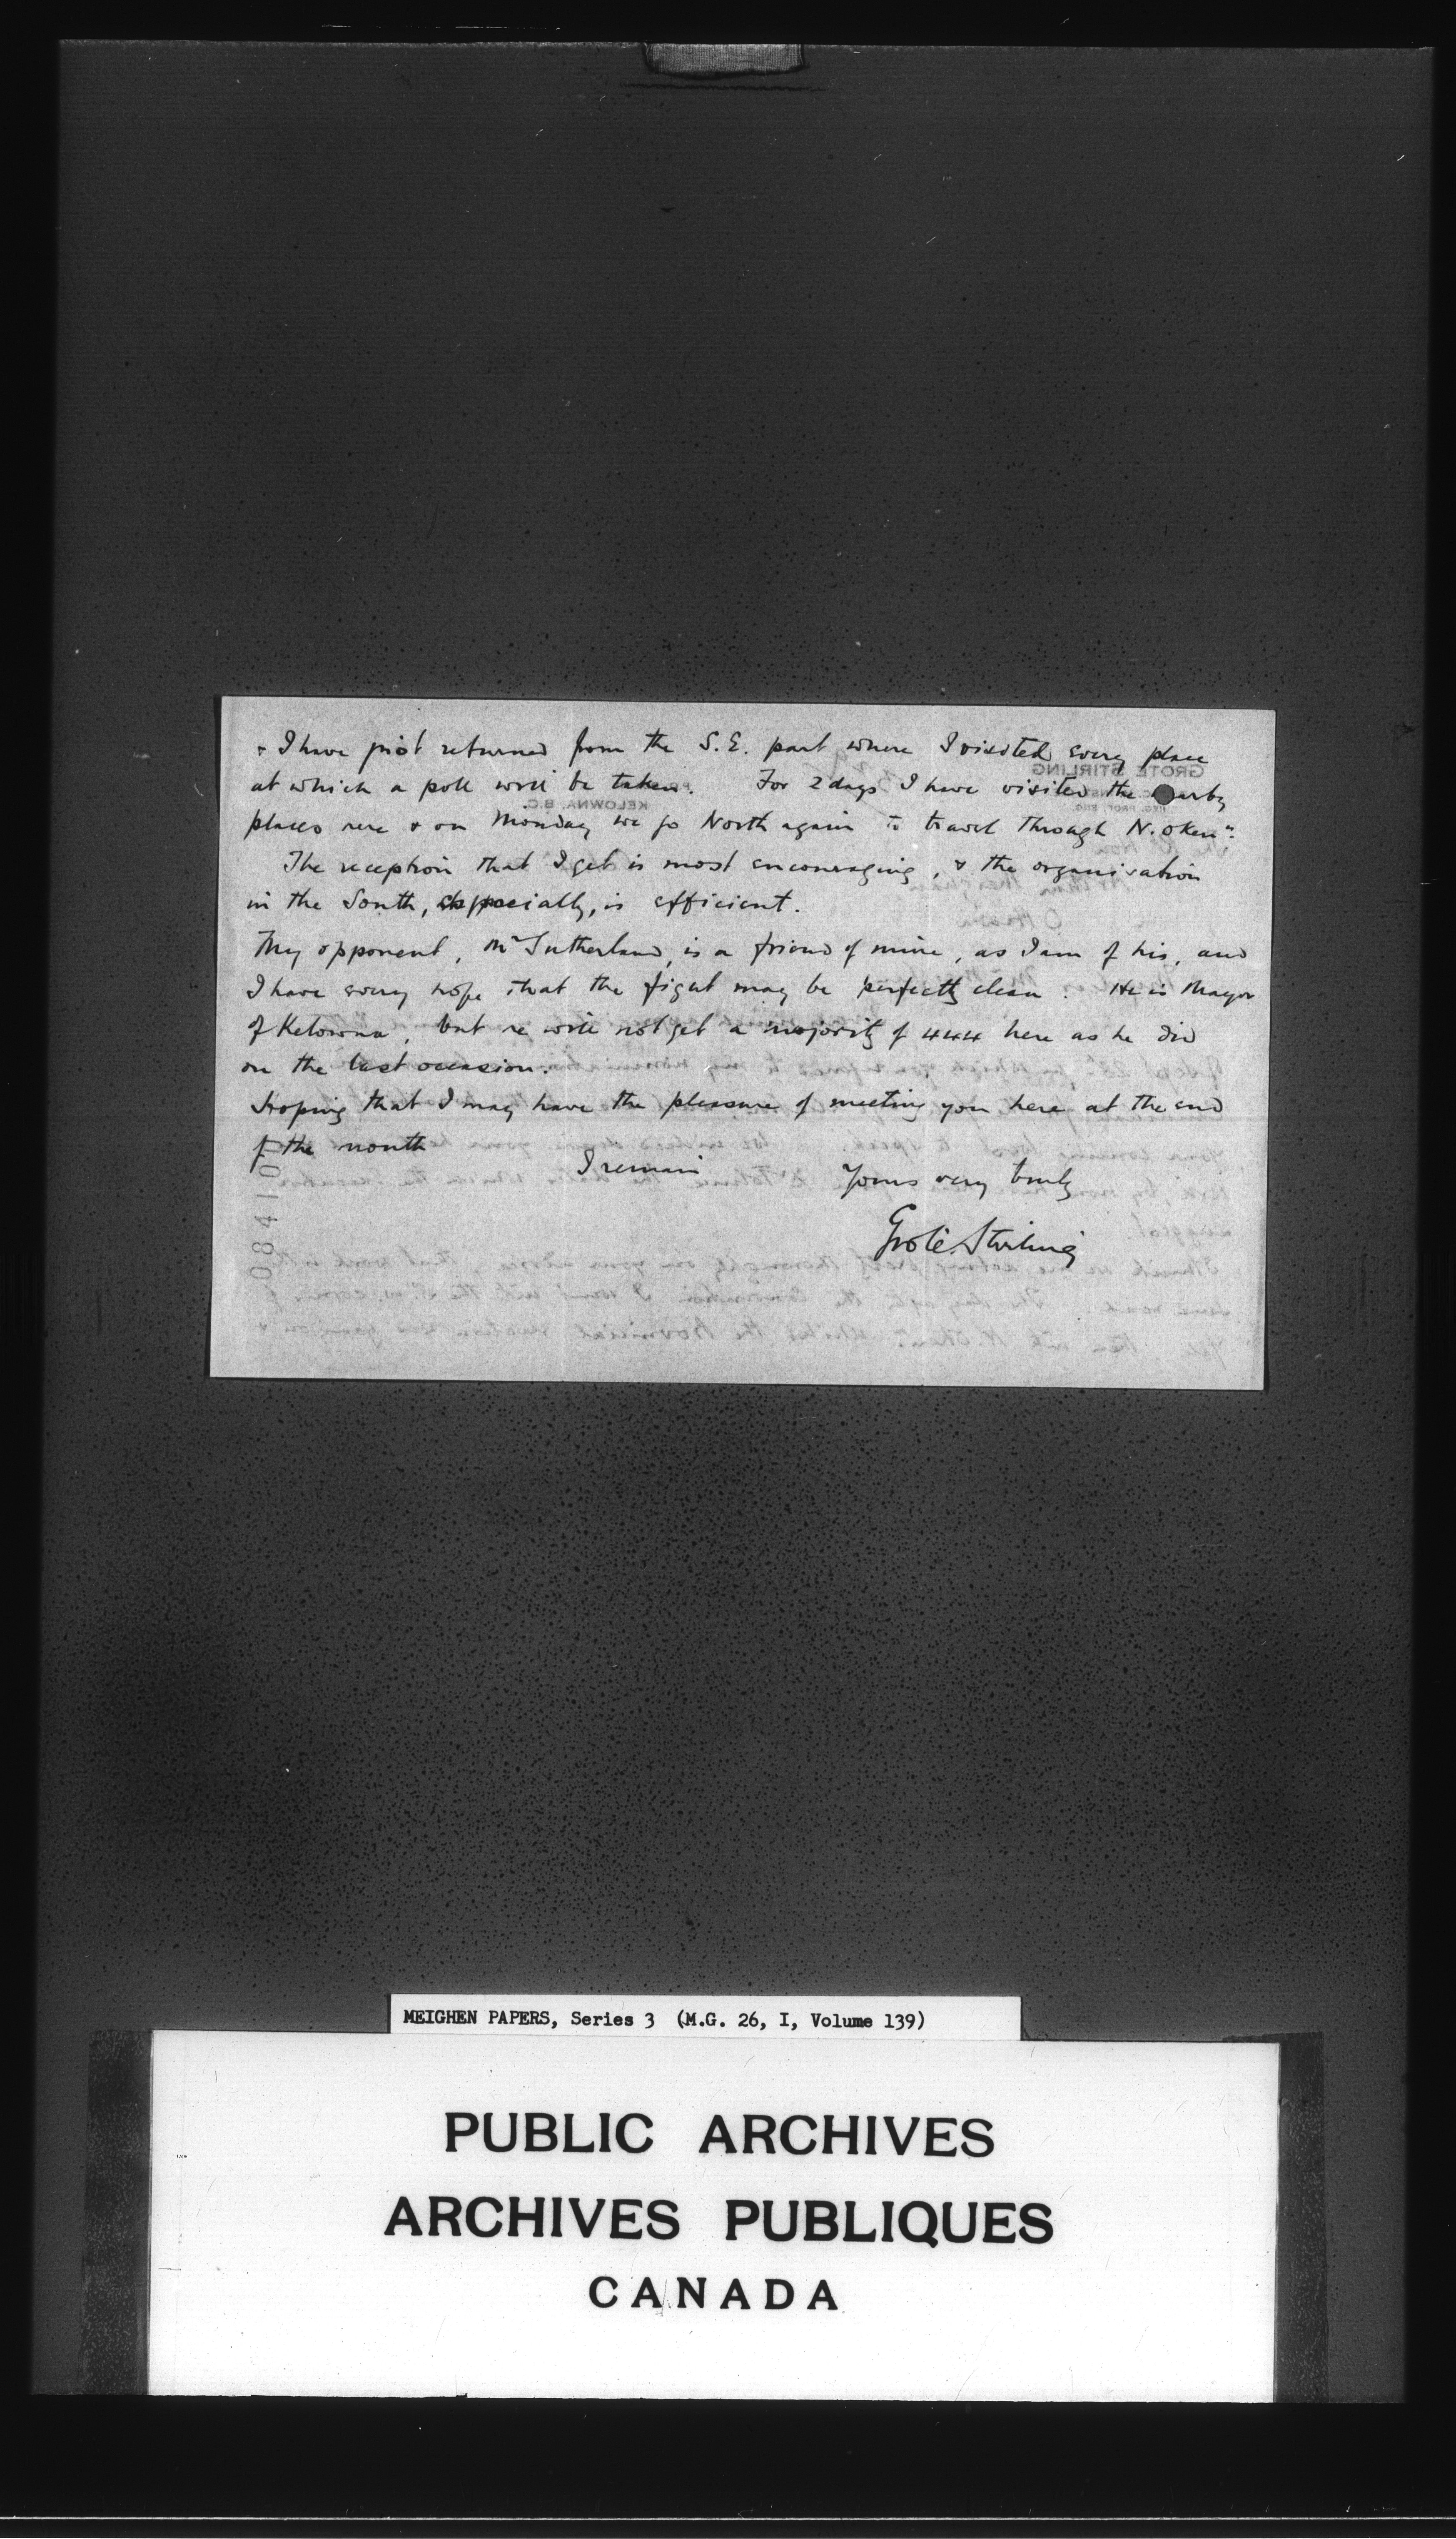 & I have just returned from the S.E. part where I visited every place
at which a poll will be taken. For 2 days I have visited the nearby
places here & on Monday we go North again to travel through N. Oken n.
The reception that I get is most encouraging, & the organisation
in the South, especially, is efficient.
My opponent, Mr Sutherland, is a friend of mine, as I am of his, and
I have every hope that the fight may be perfectly clean. He is Mayor
of Kelowna, but he will not get a majority of 444 here as he did
on the last occasion.
Hoping that I may have the pleasure of meeting you here at the end
of the month
I remain Yours very truly
Grote Stirling
GROTE STIRLING
KELOWNA, B.C.
MEIGHEN PAPERS, Series 3 (M.G. 26, I, Volume 139)
PUBLIC ARCHIVES
ARCHIVES PUBLIQUES
CANADA